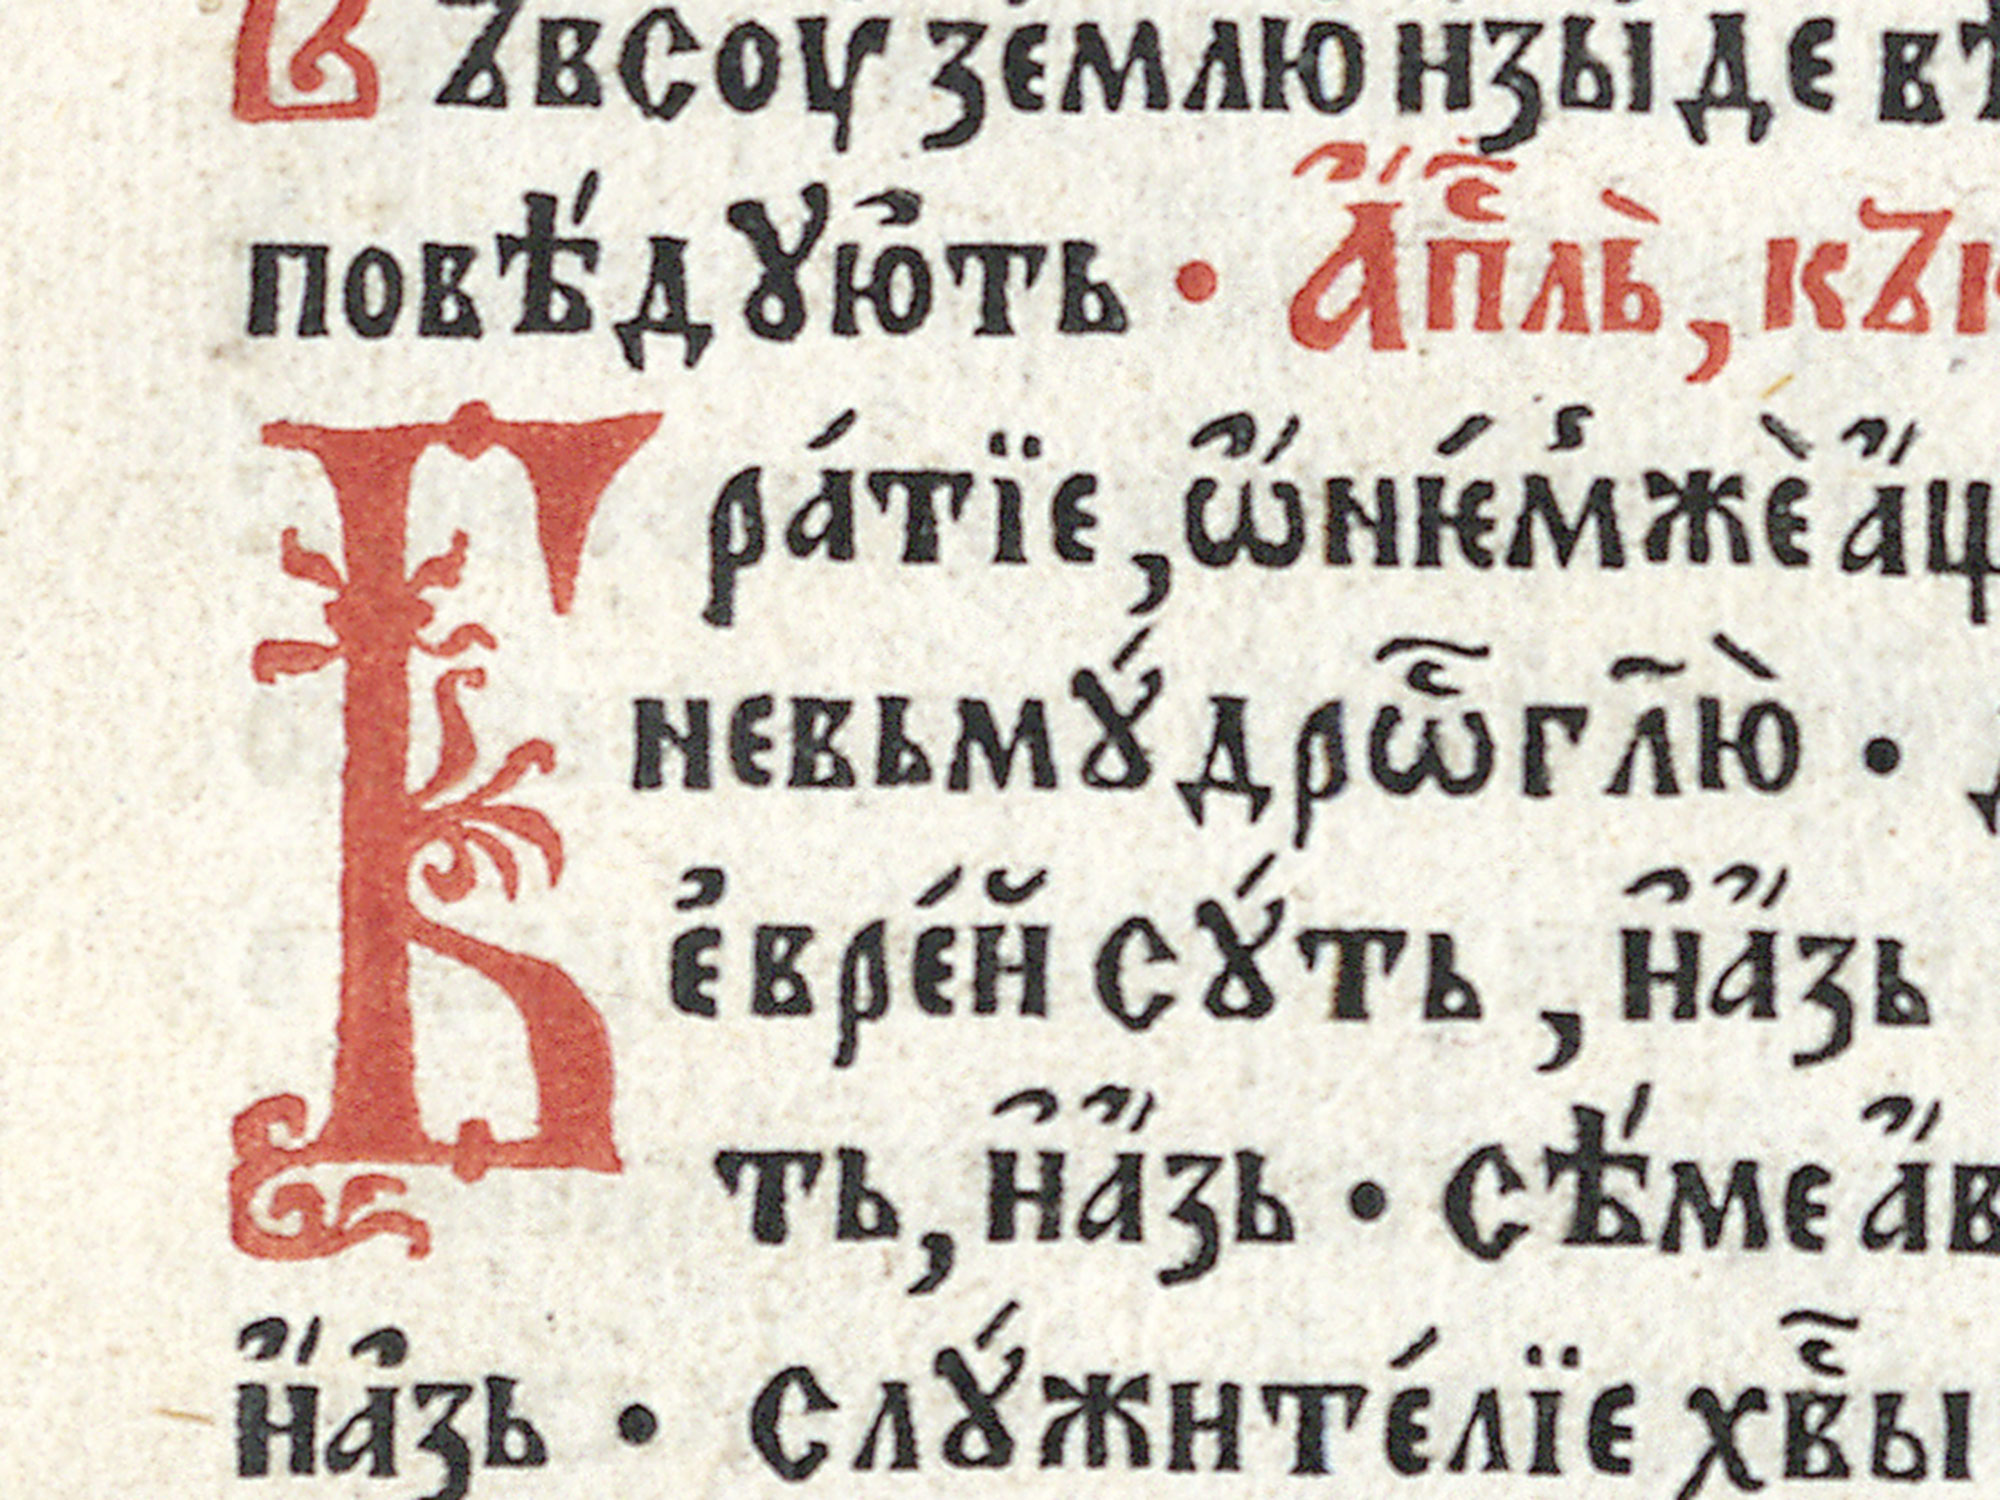 В Ъвсоу землю изыде вѣ
повѣдꙋю҆ть · А҆́пⷭ҇лЬ̀, къ
Бра́тїе, ѡ҆́нѥ́мⸯжѐ а҆́щ
невьмꙋ́дрѡⷭ҇ гл҃ю̀ ·
е҆вре́й сꙋ́ть , и҆а҆́зь
ть, и҆а҆́зь · сѣ́ме а҆́в
и҆́а҆зь · слꙋ́жите́лїе хⷭ҇вы